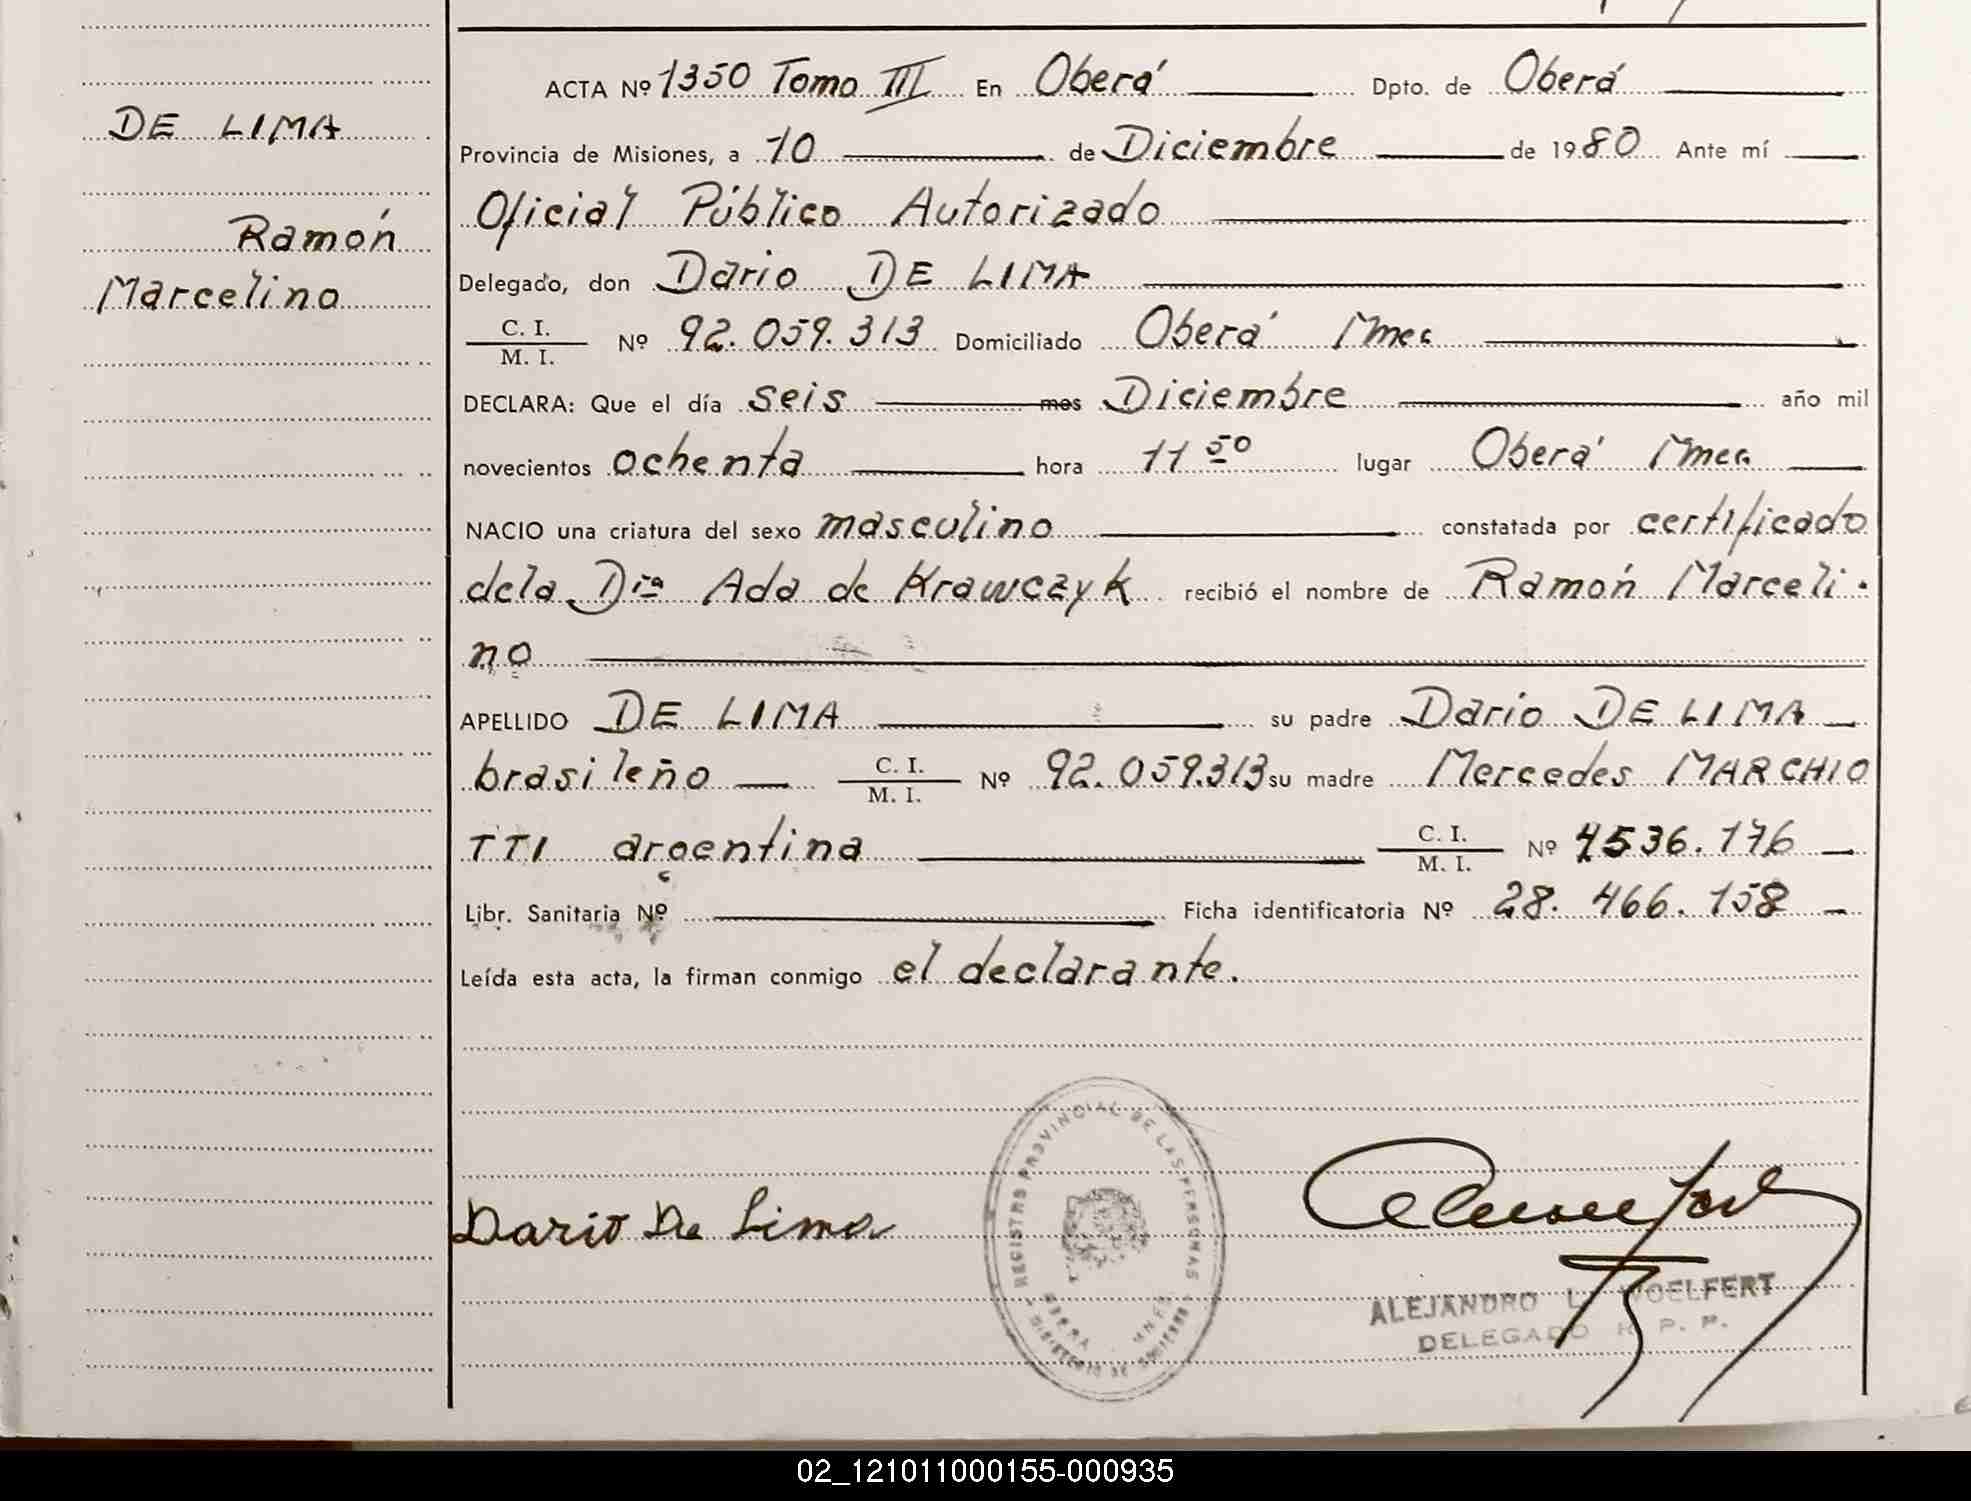 DE LIMA
Ramón
Marcelino
ACTA Nº 1350 Tomo III En Oberá Dpto. de Oberá
Provincia de Misiones, a 10 de Diciembre de 1980 Ante mí
Oficial Público Autorizado
Delegado, don Dario DE LIMA
C. I.
M. I. Nº 92.059.313 Domiciliado Oberá Mnes
DECLARA: Que el día seis mes Diciembre año mil
novecientos ochenta hora 11 50 lugar Oberá Mnes
NACIO una criatura del sexo masculino constatada por certificado
dela Dra Ada de Krawczyk recibió el nombre de Ramón Marceli-
no
APELLIDO DE LIMA su padre Dario DE LIMA
brasileño C. I.
M. I. Nº 92.059.313 su madre Mercedes MARCHIO
TTI argentina C. I.
M. I. Nº 4536.176
Libr. Sanitaria Nº Ficha identificatoria Nº 28.466.158
Leída esta acta, la firman conmigo el declarante.
REGISTRO PROVINCIAL DE LAS PERSONAS
OBERA MNES
MINISTERIO DE GOBIERNO
Dario De Lima
ALEJANDRO L. WOELFERT
DELEGADO R. P. P.
02_121011000155-000935